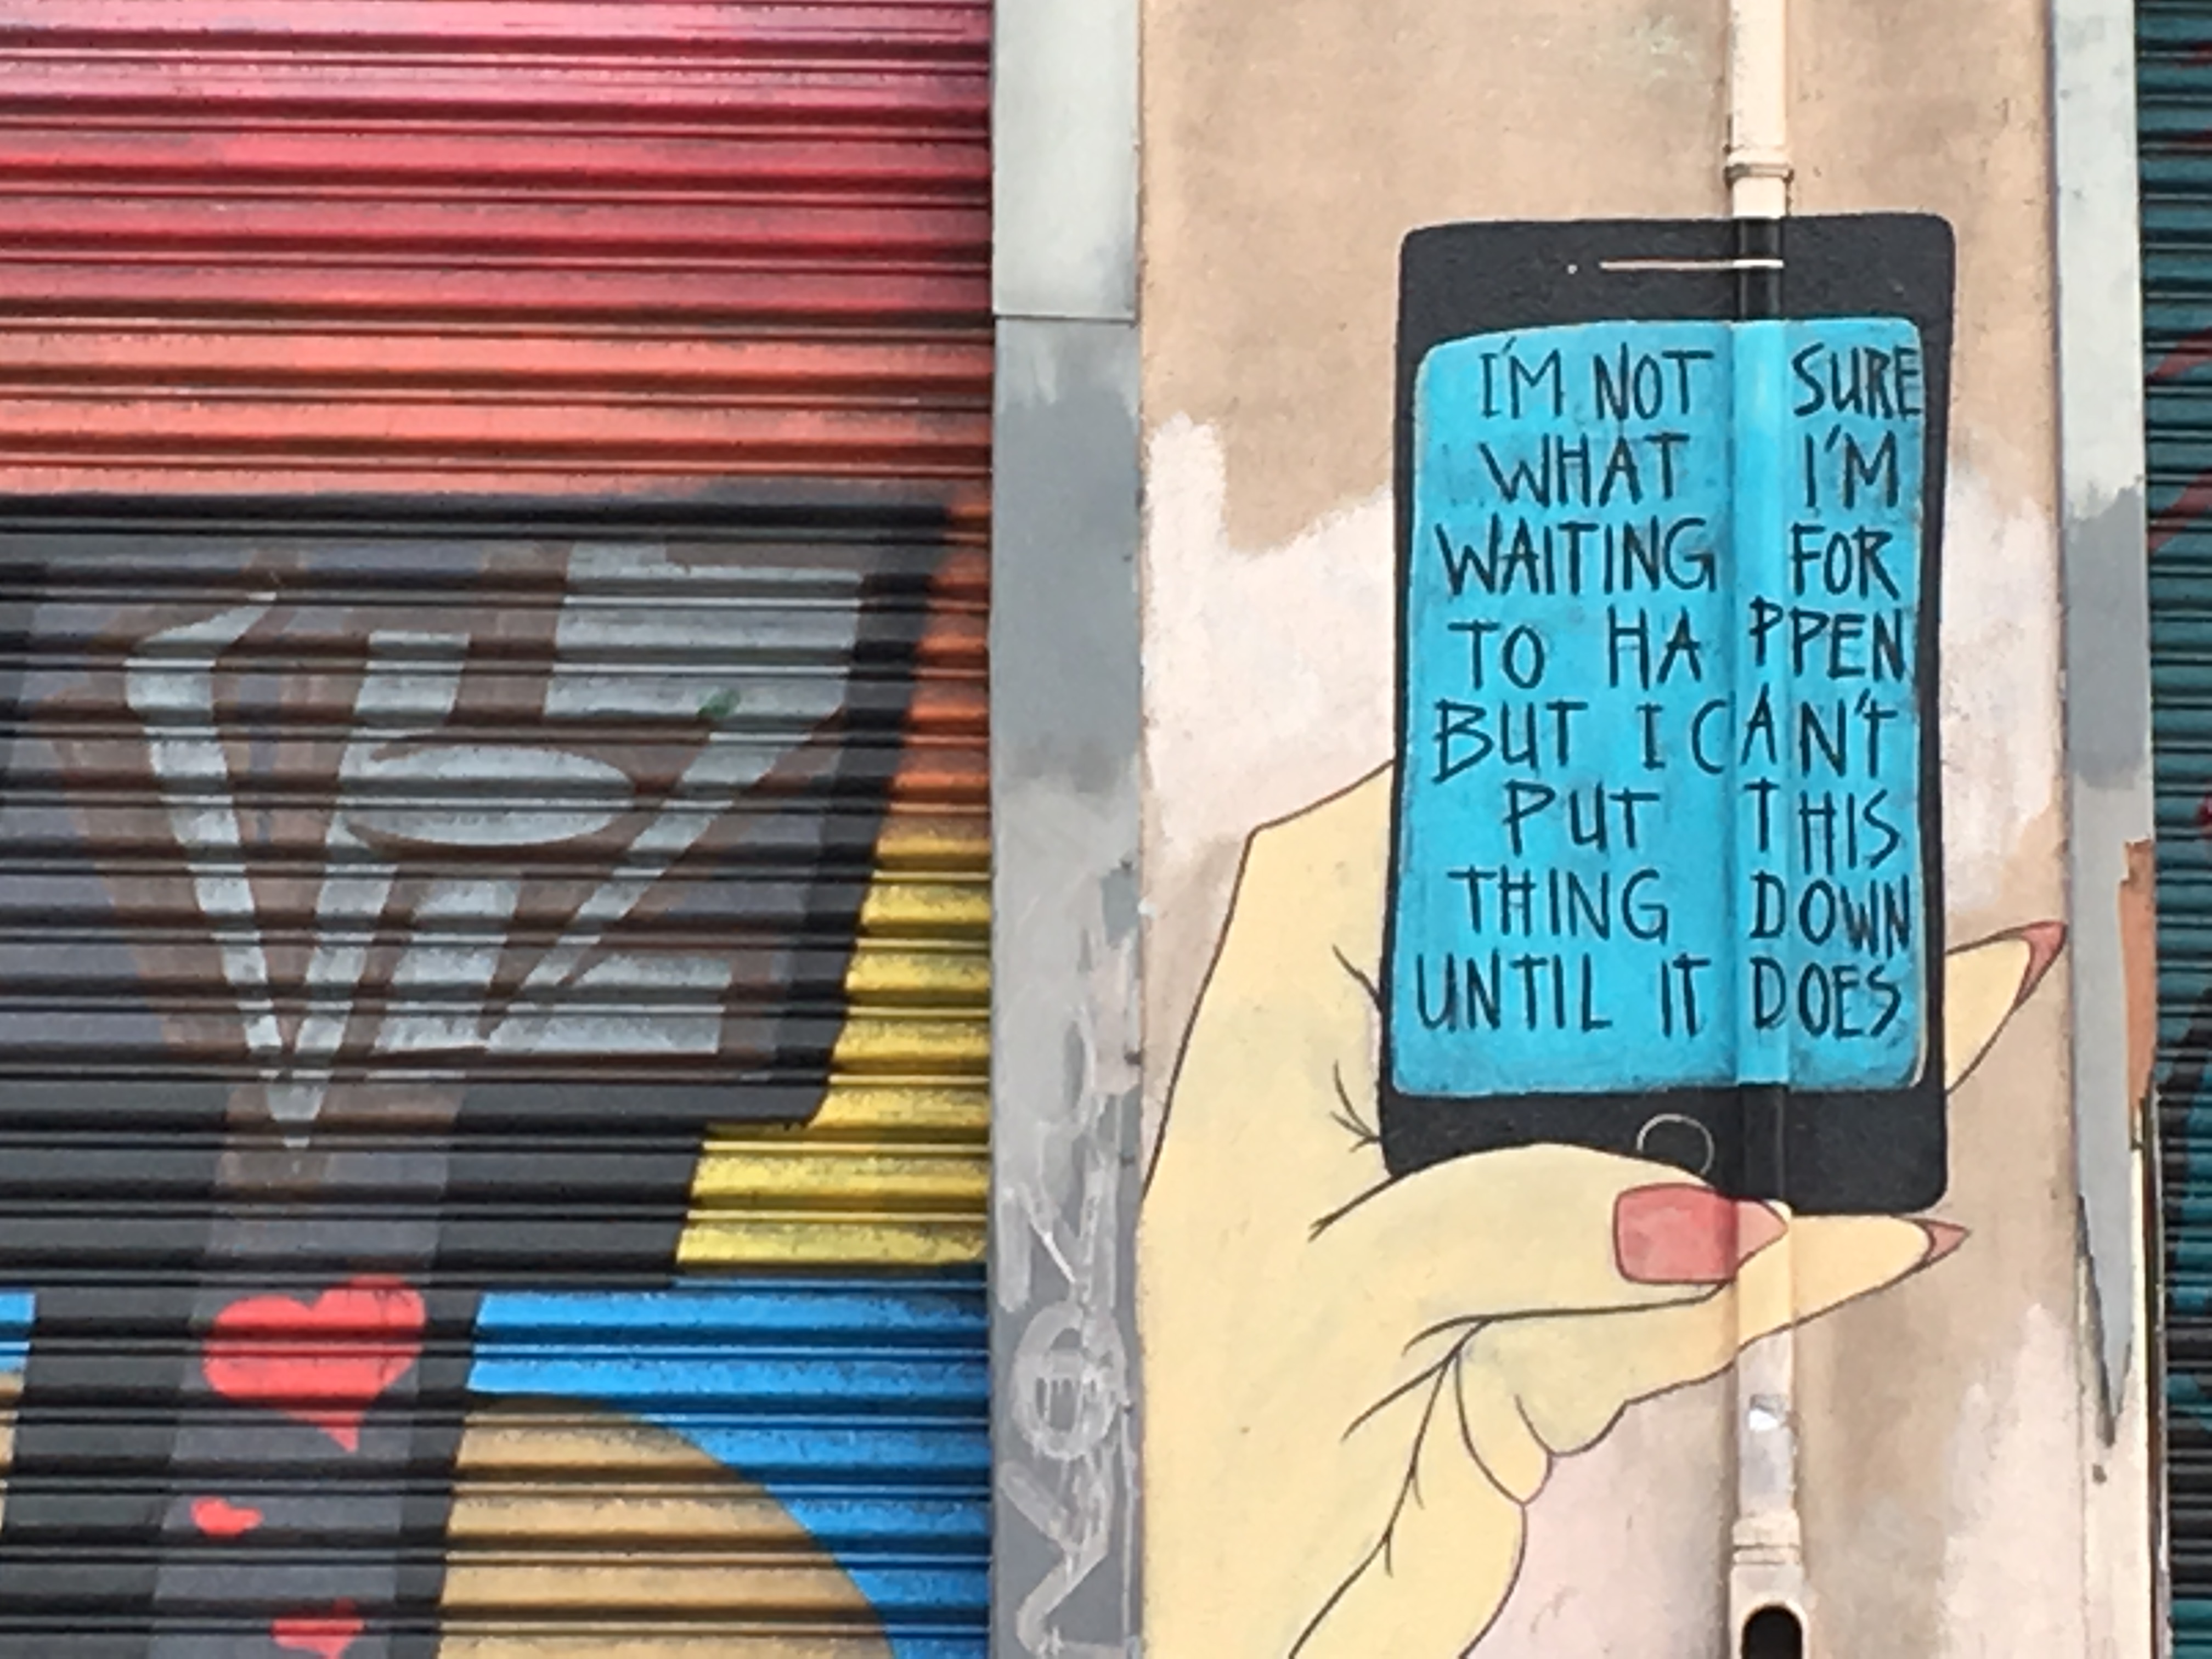 I'M NOT SURE
WHAT I'M
WAITING FOR
TO HAPPEN
BUT I CAN'T
PUT THIS
THING DOWN
UNTIL IT DOES